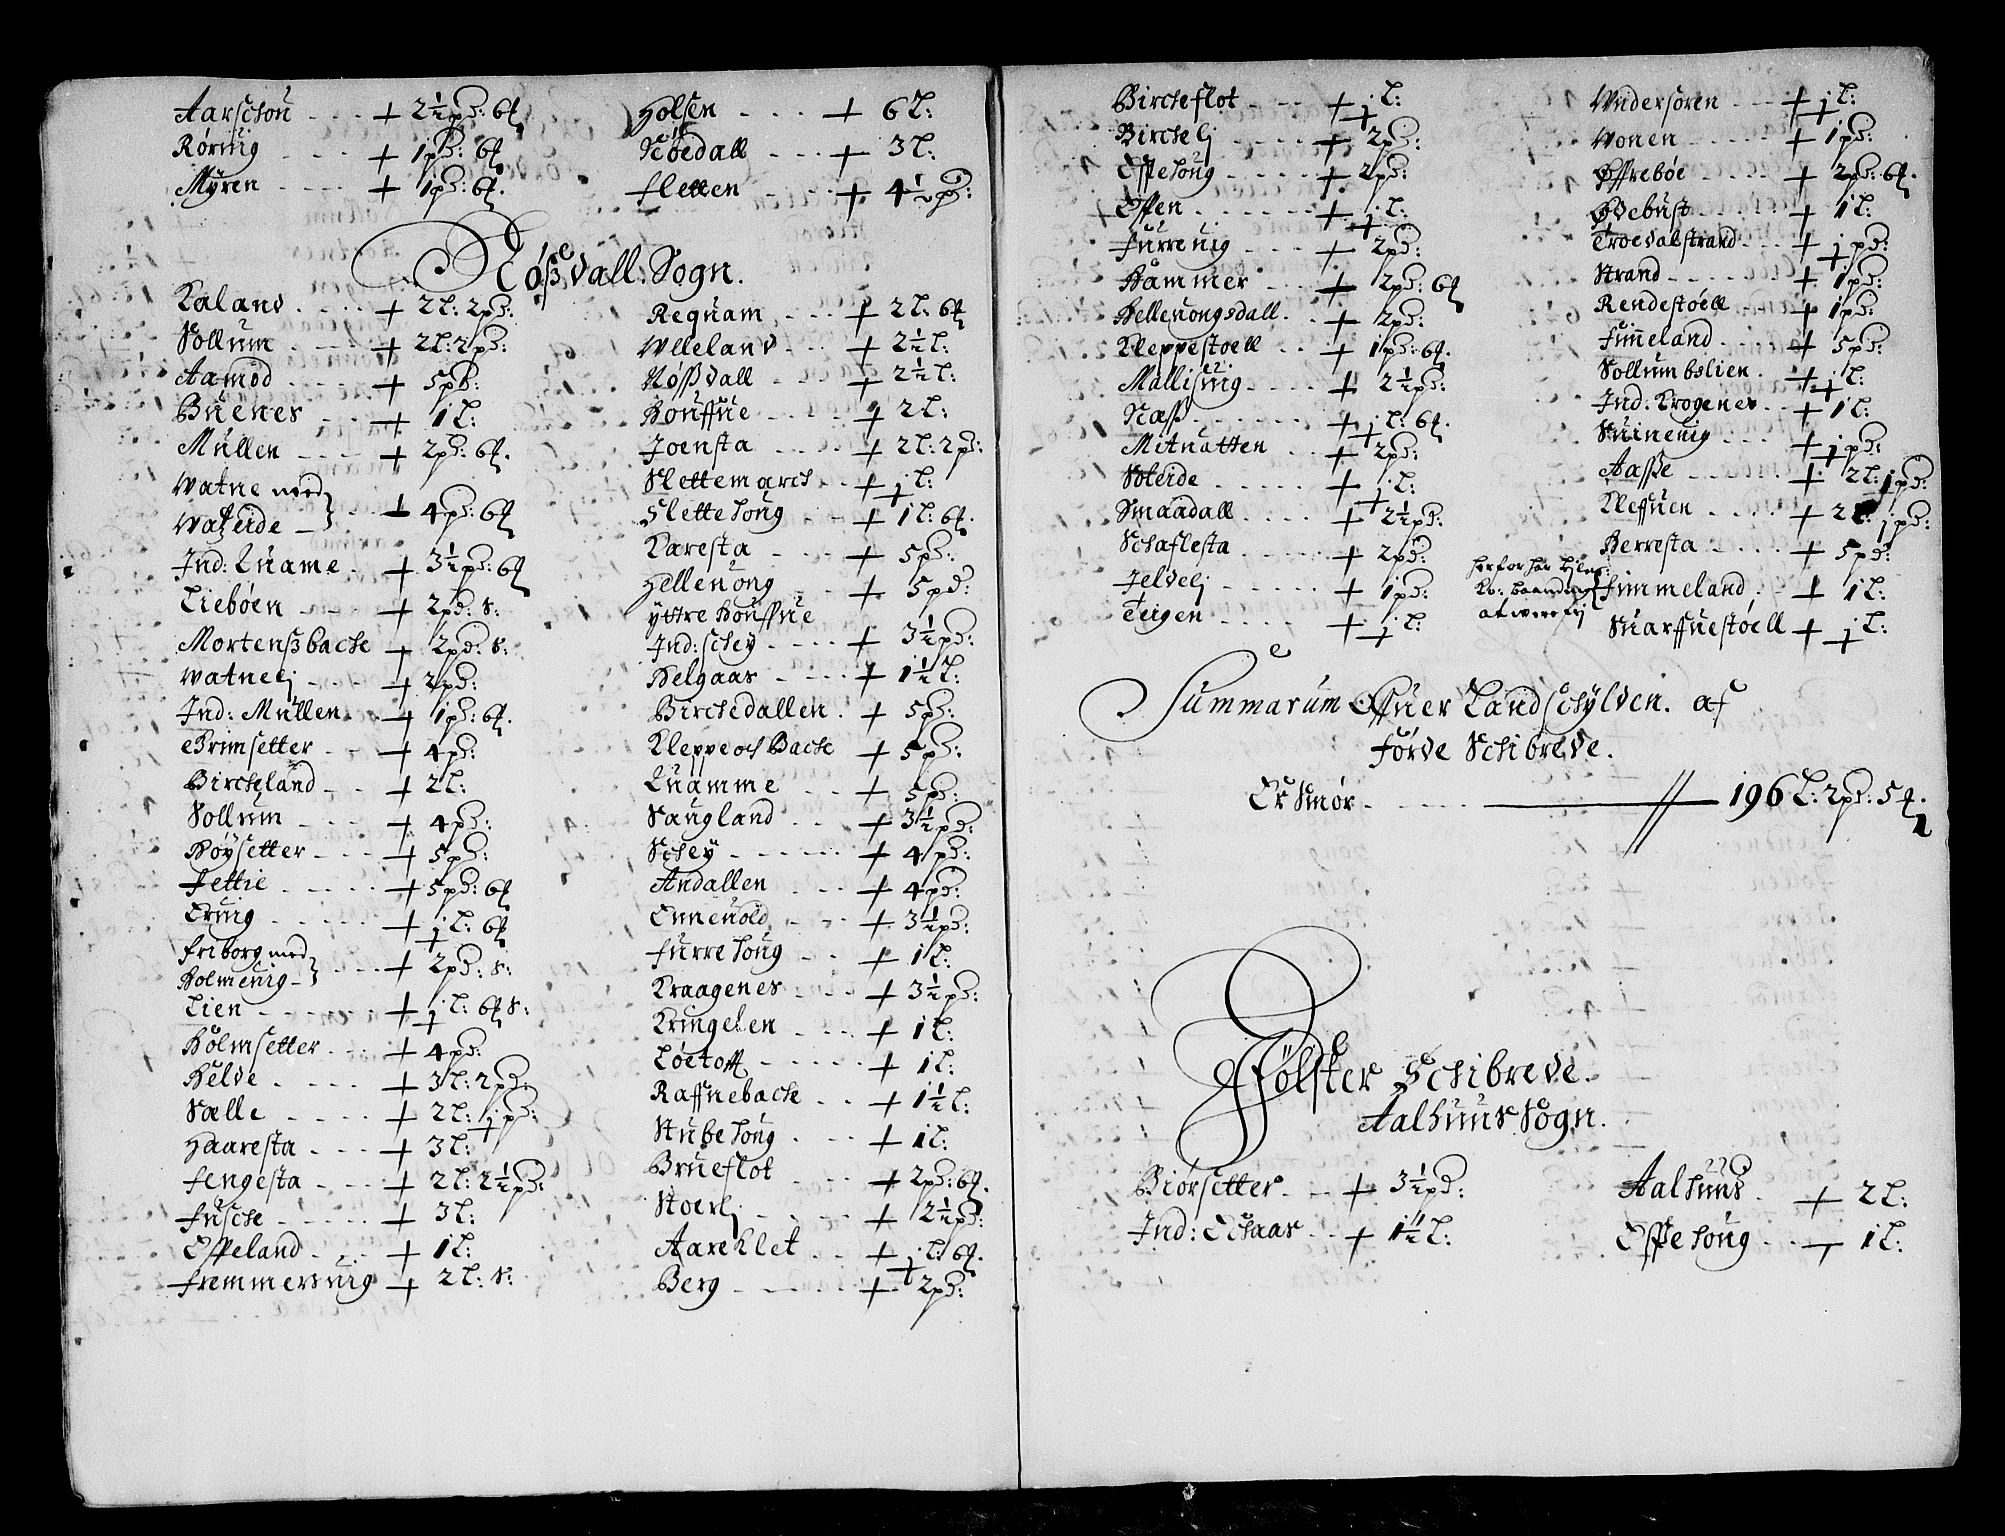 Aarschou - - - + 2½ pd: 6 ℔
Rørvig - - - + 1 pd: 6 ℔.
Myren - - - + 1 pd: 6 ℔.
Holsen - - - + 6 L:
Nøedall - - - + 3 L:
Fletten - - - + 4½ pd:
Nøßdall: Sogn.
Kaland - - - + 2 L: 2 pd:
Sollum - - - + 2 L: 2 pd:
Aamod - - - + 5 pd:
Buenes - - - + 1 L:
Müllen - - - + 2 pd: 6 ℔.
Watne med
Wateide - } - - + 4 pd: 6 ℔
Ind: Quame - + 3½ pd: 6 ℔
Liebøen - - - + 2 pd: s:
Mortensßbache + 2 pd: s:
Watnelj - - - + 2 pd:
Ind: Müllen + 1 pd: 6 ℔.
Grimsetter - - + 4 pd:
Bircheland - - + 2 L:
Sollum - - - + 4 pd:
Høysetter - - - + 5 pd:
Fettie - - - + 5 pd: 6 ℔
Eruig - - - + j L: 6 ℔
Friborg med
Holmeuig - } - - + 2 pd: s:
Lien - - - + j L: 6 ℔ s:
Holmsetter - - + 4 pd:
Helde - - - + 3 L: 2 pd:
Sælle - - - + 2 L: j pd:
Haaresta - - - + 3 L:
Fengesta - - - + 2 L: 2½ pd:
Fusche - - - + 3 L:
Osseland - - - + 1 L:
Fremmersuig + 2 L: s:
Regnam - - + 2 L: 6 ℔
Ulleland - - + 2½ L:
Nøssdall - - + 2½ L:
Houffue - - - + 2 L:
Joensta - - - + 2 L: 2 pd:
Slettemarch - + j L:
Slettehoug - - + 1 L: 6 ℔.
Karesta - - - + 5 pd:
Hellenong - - + 5 pd:
yttre Houffue
Ind: schey - - - + 3½ pd:
Helgaas - - - + 1½ L:
Birchedallen - + 5 pd:
Kleppe och Bache + 5 pd:
Quamme - - + 5 pd:
Haugland - - + 3½ pd:
Schey - - - + 4 pd:
Andallen - - + 4 pd:
Ennenold - - + 3½ pd:
Furrehoug - - + 1 L:
Kraagenes - - + 3½ pd:
Kringelen - - + 1 L:
Løetoft - - - + 1 L:
Raffnebache - - + 1½ L:
Stubehoug - - + 1 L:
Brueflot - - - + 2 pd: 6 ℔.
Stoerlj - - - + 2½ pd:
Aareklet - - + j L: 6 ℔.
Berg - - - + 2 pd:
Bircheflot - - - + j L:
Birchelj - - - + 2 pd:
Ossehoug - - - + 2 pd:
Ossen - - - + j L:
Furreuig - - - + 2 pd:
Hammer - - - + 2 pd: 6 ℔
Hellenongsdall - + 2 pd:
Kleppestøell - - + 1 pd: 6 ℔.
Mallisuig - - - + 2½ pd:
Næss - - - + j L: 6 ℔.
Mitnatten - - + 2 pd:
Soleide - - - + j L:
Smaadall - - - + 2½ pd:
Schaflesta - - - + 2 pd:
Jeldelj - - - + 1 pd:
Teigen - - - + j L:
Undersøren - - + j L:
Wonen - - - + 1 pd:
Øffrebøe - - - + 2 pd: 6 ℔.
Ødebust - - - + 1 L:
Troedalstrand - + j pd:
Strand - - - + 1 pd:
Rendestøell - - + 1 pd:
Fimmeland - - - + 5 pd:
Sollumbølien - + j L:
Ind: Krogenes - + 1 L:
Suineuig - - - + j pd:
Aasse - - - + 2 L: j pd:
Kleffuen - - - + 2 L: j pd:
Herresta - - - + 5 pd:
Fimmeland - + 1 L:
Suarffuestøell + j L:
Summarum Offuer Landschylden. af
Førde Schibrede.
Er Smør - - - 196 L: 2 pd: 5 ℔.
Jølster Schibrede.
Aalhuus Sogn.
Biørsetter - - + 3½ pd:
Ind: Echaas - - + 1½ L:
Aalhuus - - + 2 L:
Ossehoug - - + 1 L: